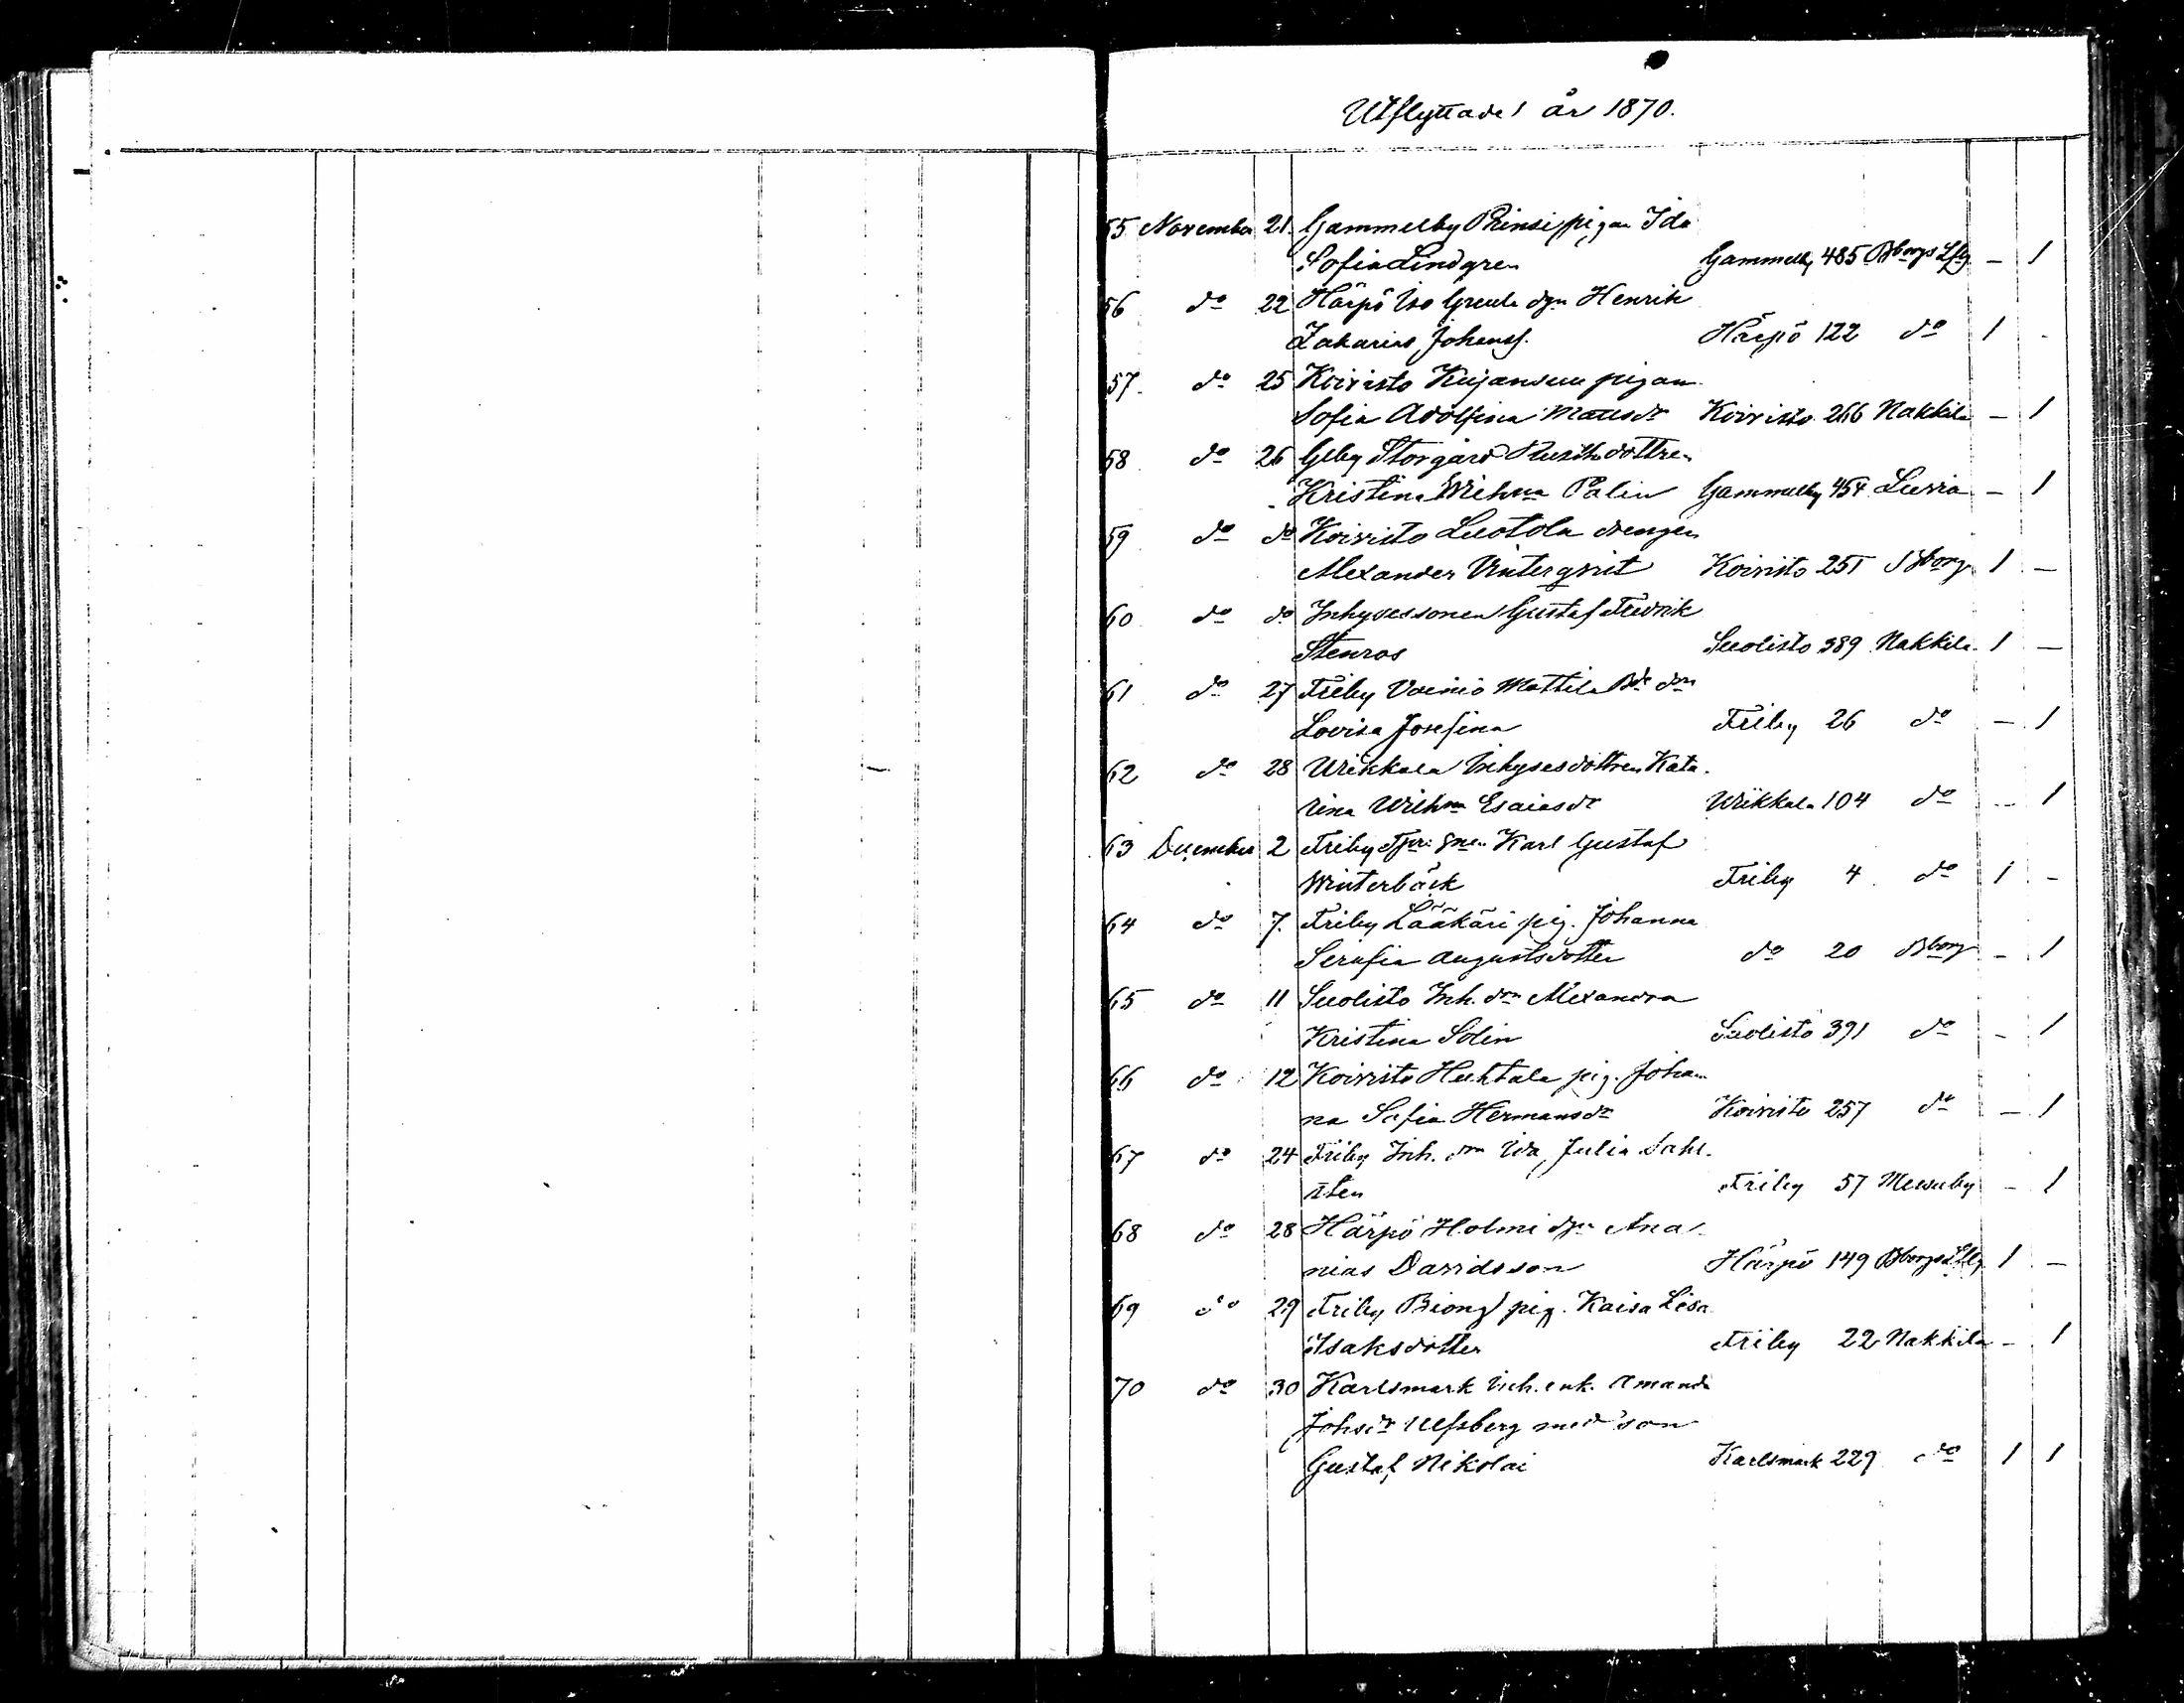 Utflyttade år 1870.
55 November 21. Gammelby Prinsi pigan Ida
Sofia Lindgren Gammelby 485 Bborgs Lfg – 1
56 do 22 Härpö Iso Greula dgn Henrik
Zakarias Johanss. Härpö 122 do 1 -
57. do 25 Koivisto Kujansuu pigan
Sofia Adolfina Mattsdr Koivisto 266 Nakkila – 1
58 do 26 Glby Storgård dottren
Kristina Wilhma Palin Gammelby 454 Luvia – 1
59 do do Koivisto Luotola drengen
Alexander Vinterqvist Koivisto 251 Bborg 1 –
60 do do Inhysessonen Gustaf Fredrik
Stenros Suolisto 389 Nakkila 1 –
61 do 27 Friby Vainio Mattila Bde don
Lovisa Josefina Friby 26 do – 1
62 do 28 Wiikkala Inhysesdottren Kata-
rina Wilhma Esaiasdr Wiikkala 104 do – 1
63 December 2 Friby Karl Gustaf
Winterbäck Friby 4 do 1 -
64 do 7. Friby Lääkäri pig. Johanna
Serafia Augustsdotter do 20 Bborg – 1
65 do 11 Suolisto Inh. don Alexandra
Kristina Solin Suolisto 391 do – 1
66 do 12 Koivisto Huhtala pig. Johan
na Sofia Hermansdr Koivisto 257 do – 1
67 do 24 Friby Inh. don Ida Julia Sahl-
sten Friby 57 – 1
68 do 28 Härpö Holmi dgn Ana-
nias Davidsson Härpö 149 Bborgs Lfg 1 –
69 do 29 Friby Biong pig. Kaisa Lisa
Isaksdotter Friby 22 Nakkila – 1
70 do 30 Karlsmark Inh. enk. Amanda
Johsdr Ulfsberg med son
Gustaf Nikolai Karlsmark 229 do 1 1